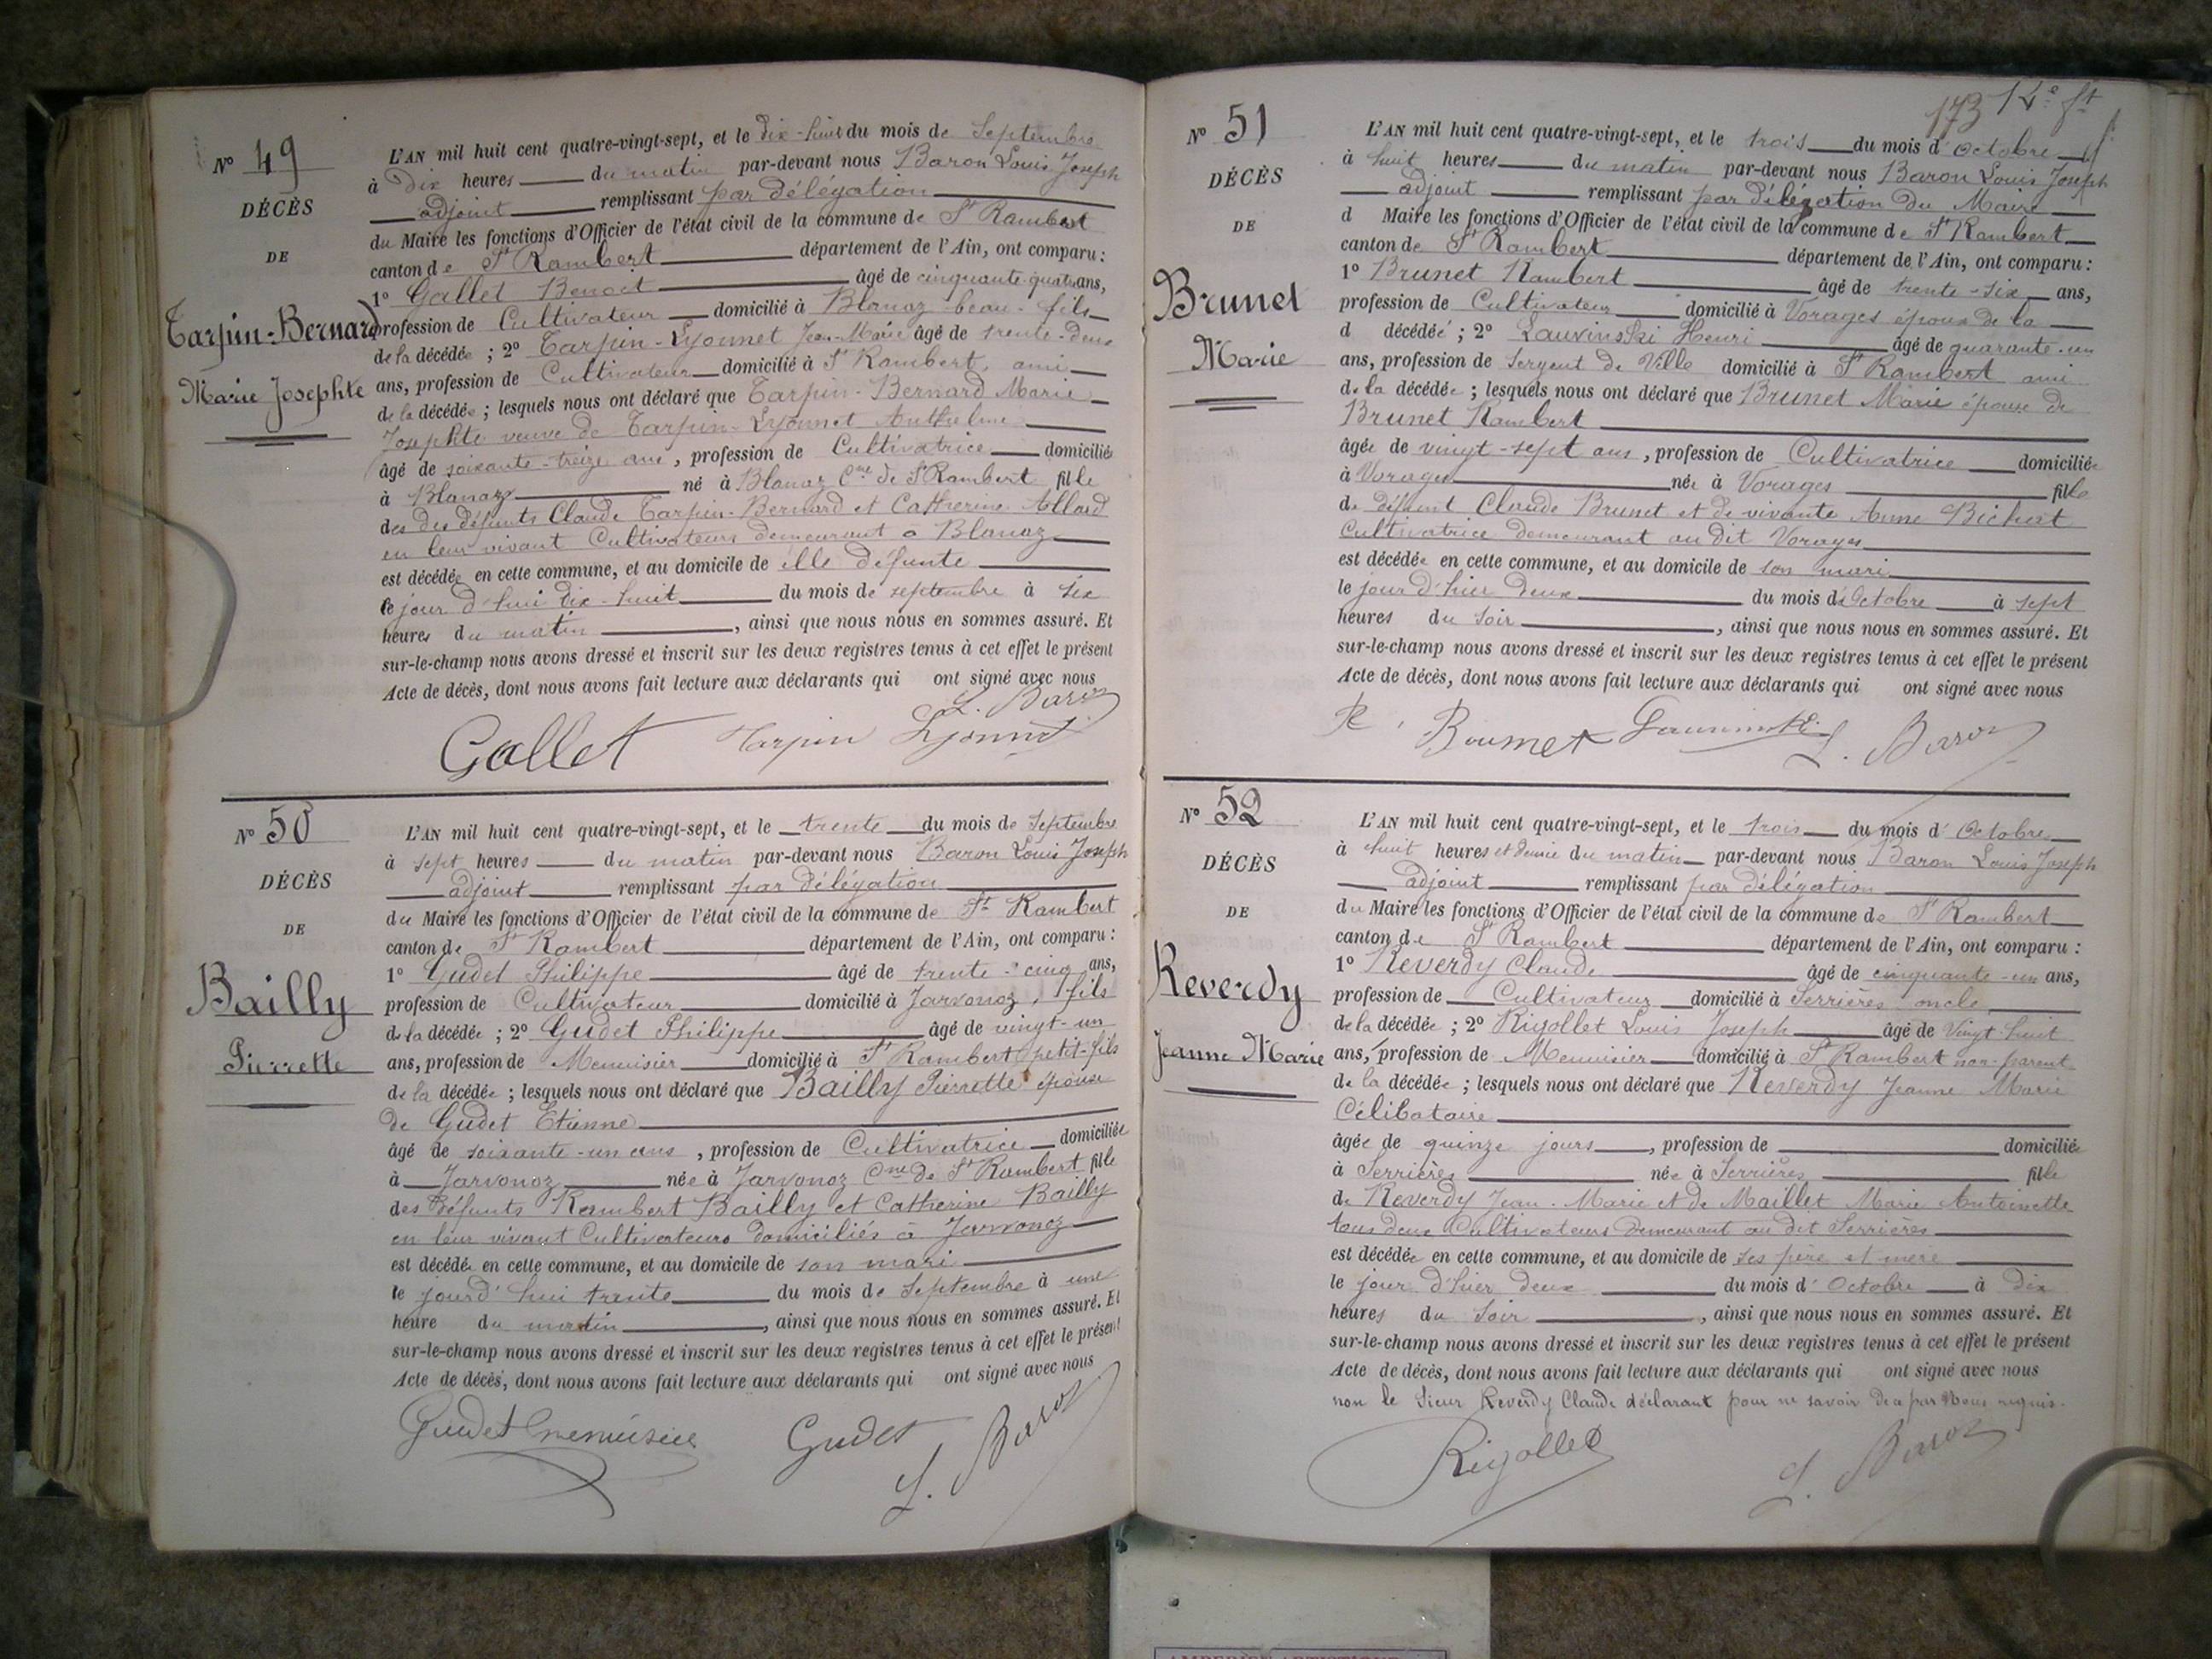 Nº 49
DÉCÈS
DE
Tarpin-Bernard
Marie Josephte
L'AN mil huit cent quatre-vingt-sept, et le dix-huit du mois de Septembre
à Dix heures du matin par-devant nous Baron Louis Joseph
adjoint remplissant par délégation
du Maire les fonctions d'Officier de l'état civil de la commune de St Rambert
canton de St Rambert département de l'Ain, ont comparu :
1º Gallet Benoit âgé de cinquante-quatre ans,
profession de Cultivateur domicilié à Blanaz beau-fils
de la décédée ; 2º Tarpin-Lyonnet Jean-Marie âgé de trente-deux
ans, profession de Cultivateur domicilié à St Rambert, ami
de la décédée ; lesquels nous ont déclaré que Tarpin-Bernard Marie
Josephte veuve de Tarpin-Lyonnet Anthelme
âgé de soixante-treize ans, profession de Cultivatrice domiciliée
à Blanaz né à Blanaz Cne de St Rambert fille
des des défunts Claude Tarpin-Bernard et Catherine Allard
en leur vivant Cultivateurs demeurant à Blanaz
est décédée en cette commune, et au domicile de elle défunte
le jour d'hui dix-huit du mois de septembre à six
heures du matin, ainsi que nous nous en sommes assuré. Et
sur-le-champ nous avons dressé et inscrit sur les deux registres tenus à cet effet le présent
Acte de décès, dont nous avons fait lecture aux déclarants qui ont signé avec nous
L. Baron
Gallet Tarpin Lyonnet
Nº 50
DÉCÈS
DE
Bailly
Pierrette
L'AN mil huit cent quatre-vingt-sept, et le trente du mois de Septembre
à sept heures du matin par-devant nous Baron Louis Joseph
adjoint remplissant par délégation
du Maire les fonctions d'Officier de l'état civil de la commune de St Rambert
canton de St Rambert département de l'Ain, ont comparu :
1º Gudet Philippe âgé de trente-cinq ans,
profession de Cultivateur domicilié à Jarvonoz, fils
de la décédée ; 2º Gudet Philippe âgé de vingt-un
ans, profession de Menuisier domicilié à St Rambert petit-fils
de la décédée ; lesquels nous ont déclaré que Bailly Pierrette épouse
de Gudet Etienne
âgé de soixante-un ans, profession de Cultivatrice domiciliée
à Jarvonoz née à Jarvonoz Cne de St Rambert fille
des défunts Rambert Bailly et Catherine Bailly
en leur vivant Cultivateurs domiciliés à Jarvonoz
est décédée en cette commune, et au domicile de son mari
le jourd'hui trente du mois de Septembre à une
heure du matin, ainsi que nous nous en sommes assuré. Et
sur-le-champ nous avons dressé et inscrit sur les deux registres tenus à cet effet le présent
Acte de décès, dont nous avons fait lecture aux déclarants qui ont signé avec nous
Gudet Gudet L. Baron
173 14e ft
Nº 51
DÉCÈS
DE
Brunet
Marie
L'AN mil huit cent quatre-vingt-sept, et le trois du mois d'octobre
à huit heures du matin par-devant nous Baron Louis Joseph
adjoint remplissant par délégation du Maire
d Maire les fonctions d'Officier de l'état civil de la commune de St Rambert
canton de St Rambert département de l'Ain, ont comparu :
1º Brunet Rambert âgé de trente-six ans,
profession de Cultivateur domicilié à Vorages époux de la
d décédée ; 2º Lauvinski Henri âgé de quarante-un
ans, profession de Sergent de Ville domicilié à St Rambert ami
de la décédée ; lesquels nous ont déclaré que Brunet Marie épouse de
Brunet Rambert
âgée de vingt-sept ans, profession de Cultivatrice domiciliée
à Vorages née à Vorages fille
de défunt Claude Brunet et de vivante Anne Bichat
Cultivatrice demeurant au dit Vorages
est décédée en cette commune, et au domicile de son mari
le jour d'hier deux du mois d'Octobre à sept
heures du soir, ainsi que nous nous en sommes assuré. Et
sur-le-champ nous avons dressé et inscrit sur les deux registres tenus à cet effet le présent
Acte de décès, dont nous avons fait lecture aux déclarants qui ont signé avec nous
L. Baron
Nº 52
DÉCÈS
DE
Reverdy
Jeanne Marie
L'AN mil huit cent quatre-vingt-sept, et le trois du mois d'Octobre
à huit heures et demie du matin par-devant nous Baron Louis Joseph
adjoint remplissant par délégation
du Maire les fonctions d'Officier de l'état civil de la commune de St Rambert
canton de St Rambert département de l'Ain, ont comparu :
1º Reverdy Claude âgé de cinquante-un ans,
profession de Cultivateur domicilié à Serrières oncle
de la décédée ; 2º Rigollet Louis Joseph âgé de Vingt huit
ans, profession de Menuisier domicilié à St Rambert non-parent
de la décédée ; lesquels nous ont déclaré que Reverdy Jeanne Marie
Célibataire
âgée de quinze jours, profession de domiciliée
à Serrières née à Serrières fille
de Reverdy Jean-Marie et de Maillet Marie Antoinette
tous deux Cultivateurs demeurant au dit Serrières
est décédée en cette commune, et au domicile de ses père et mère
le jour d'hier deux du mois d'Octobre à dix
heures du soir, ainsi que nous nous en sommes assuré. Et
sur-le-champ nous avons dressé et inscrit sur les deux registres tenus à cet effet le présent
Acte de décès, dont nous avons fait lecture aux déclarants qui ont signé avec nous
non le Sieur Reverdy Claude déclarant pour ne savoir de ce par Nous requis.
Rigollet L. Baron